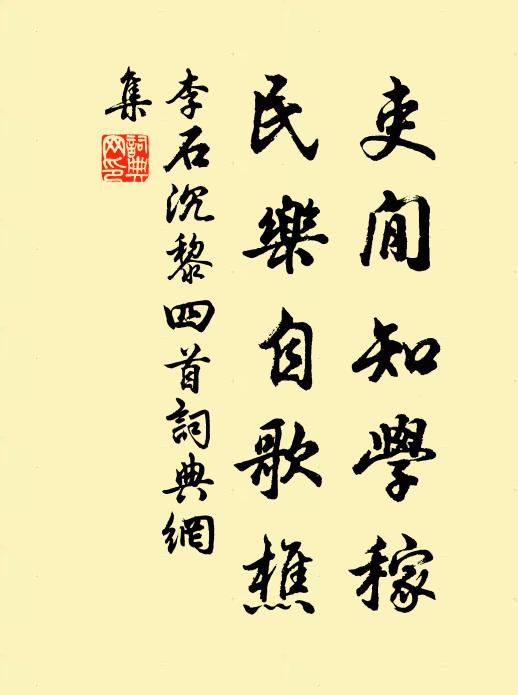 吏閒知學稼
民樂自歌樵
李石沉黎四首詞典網
集
詞典網印